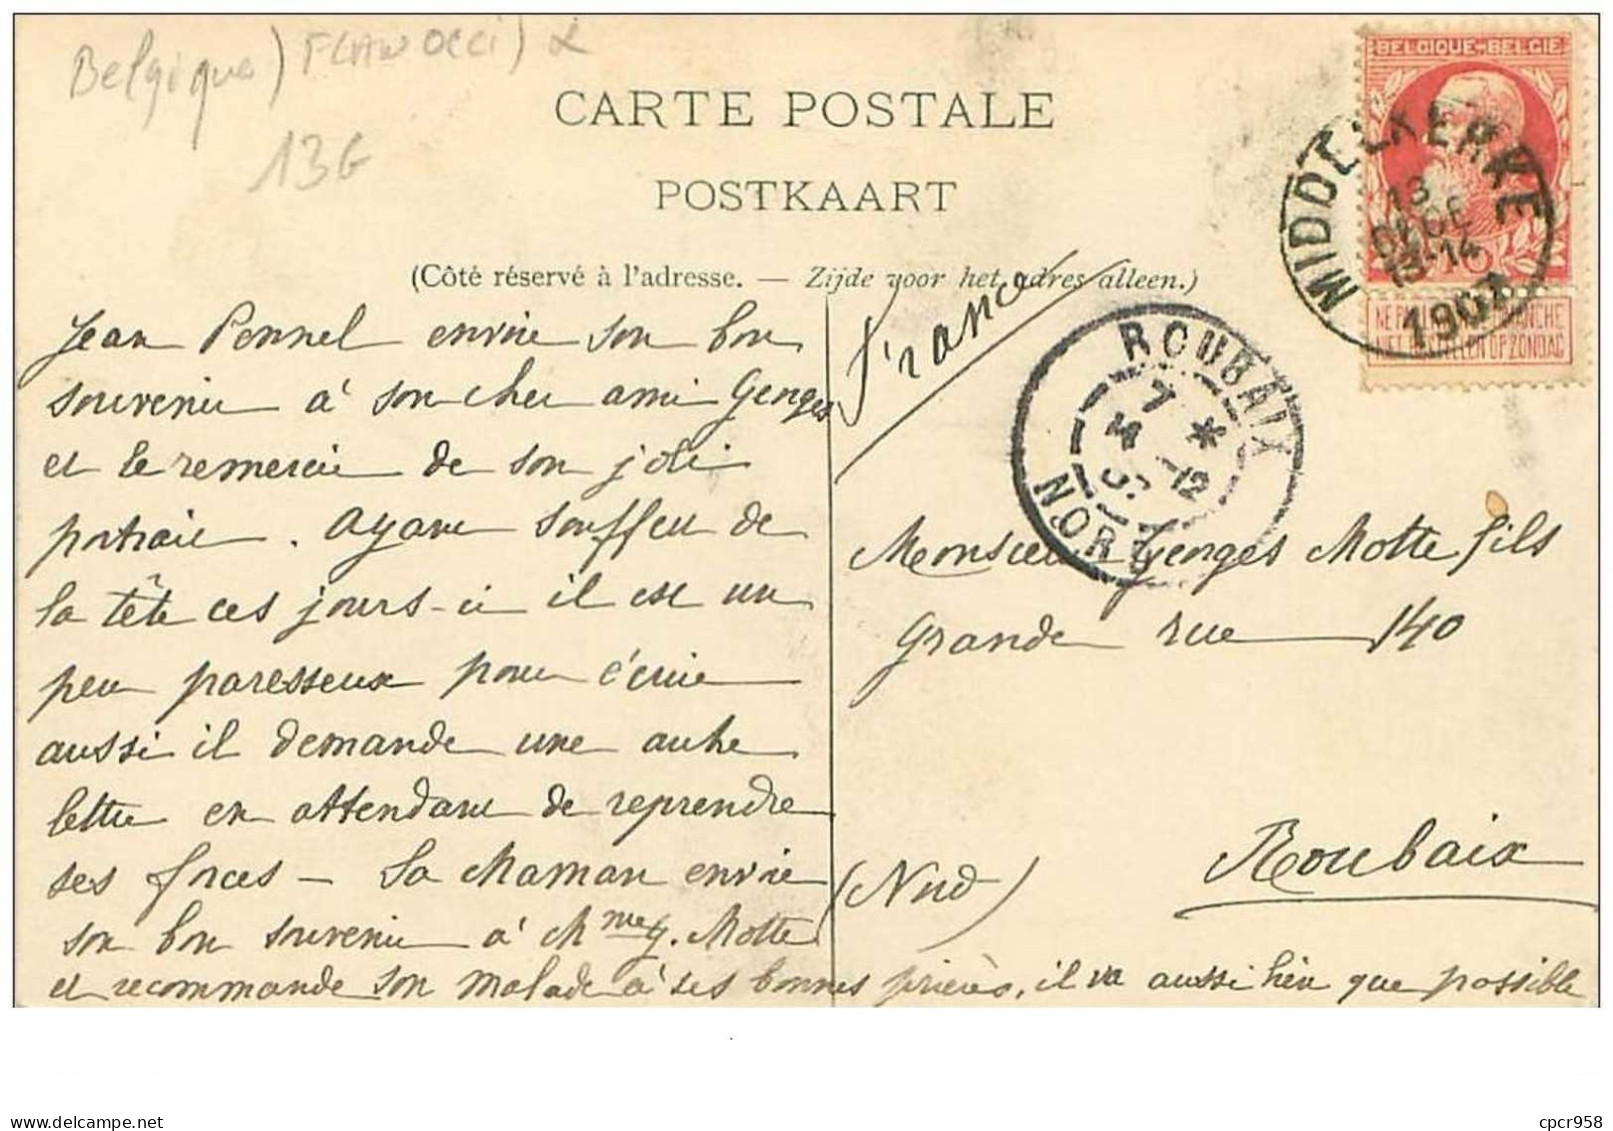 Belgique) FLAN OCCI) α
136
CARTE POSTALE
POSTKAART
(Côté réservé à l'adresse. — Zijde voor het adres alleen.)
BELGIQUE-BELGIË
MIDDELKERKE
13
DEDE
13-14
1907
NE PAS LIVRER LE DIMANCHE
NIET BESTELLEN OP ZONDAG
France
ROUBAIX
7 *
14 12
NORD
Jean Pennel envoie son bon
souvenir à son cher ami Georges
et le remercie de son joli
portrait. Ayant souffert de
la tête ces jours-ci il est un
peu paresseux pour écrire
aussi il demande une autre
lettre en attendant de reprendre
ses forces — Sa Maman envoie
son bon souvenir à Mme G. Motte
et recommande son malade à ses bonnes prières, il va aussi bien que possible
Monsieur Georges Motte fils
Grande rue 140
Roubaix
(Nord)
cpcr958
Delcampe.net